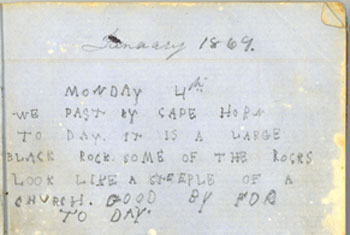 January 1869.
MONDAY 4th
WE PAST by CAPE HORN
TO DAY. IT IS A LARGE
BLACK ROCK. SOME OF THE ROCKS
LOOK LIKE A STEEPLE OF A
CHURCH. GOOD BY FOR
TO DAY.